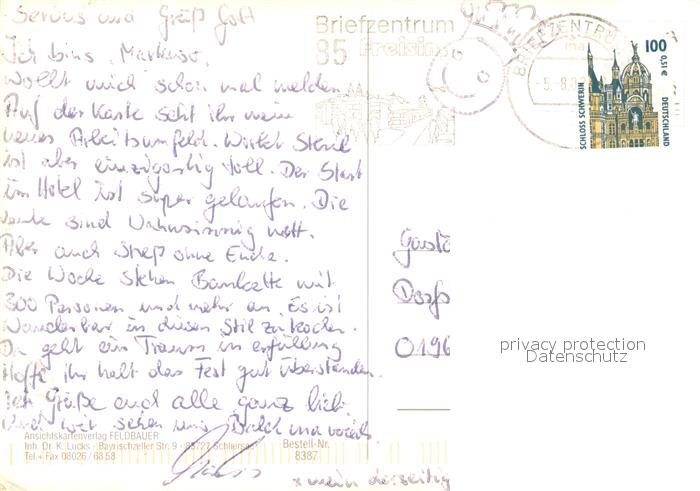 Servus und Grüß Gott
Ich bins, Markus.
Wollt mich schon mal melden
Auf der Karte seht ihr mein
neues Arbeitsumfeld. Wirkt Steril
ist aber einzigartig toll. Der Start
im Hotel ist super gelaufen. Die
Leute sind Wahnsinnig nett.
Aber auch Streß ohne Ende.
Die Woche stehen Bankette mit
300 Personen und mehr an. Es ist
Wunderbar in diesen Stil zu kochen.
Da geht ein Traum in erfüllung
Hoffe ihr habt das Fest gut überstanden.
Ich Grüße euch alle ganz lieb
Und wir sehen uns Bald
Ansichtskartenverlag FELDBAUER
Inh. Dr. K. Lucks - Bayrischzeller Str. 9 - 83727 Schliersee
Tel.+ Fax 08026 / 68 58
Bestell-Nr.
8387
x mein derzeitig
Briefzentrum
85 Freising
BRIEFZENTRUM
-5.-8.02
100
0,51 €
SCHLOSS SCHWERIN
DEUTSCHLAND
Gastä
Dorfs
0196
privacy protection
Datenschutz